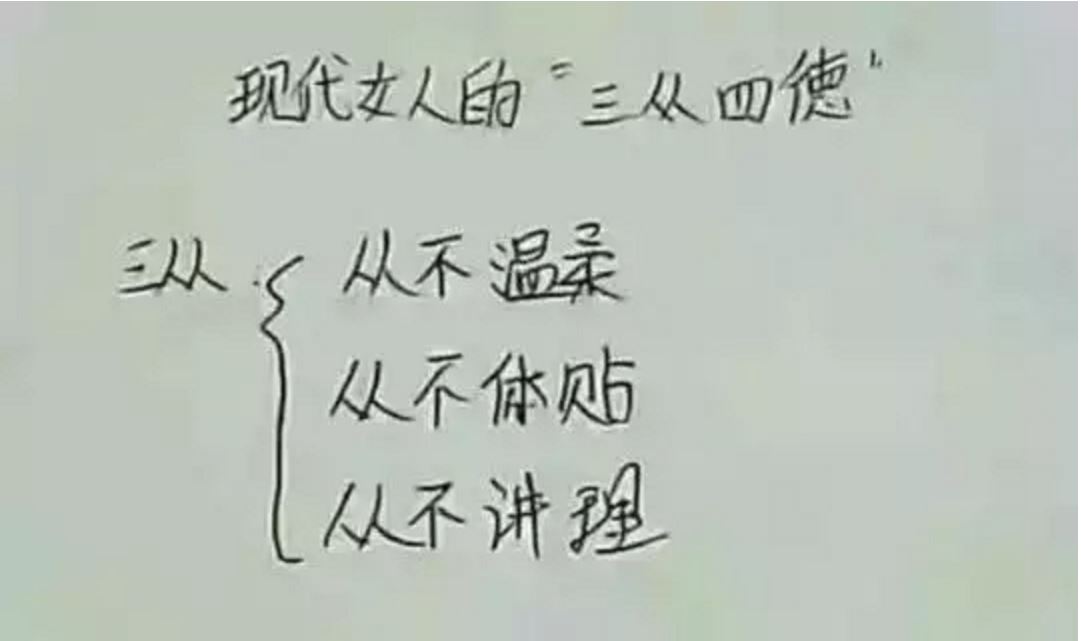 现代女人的“三从四德”
三从 { 从不温柔
从不体贴
从不讲理